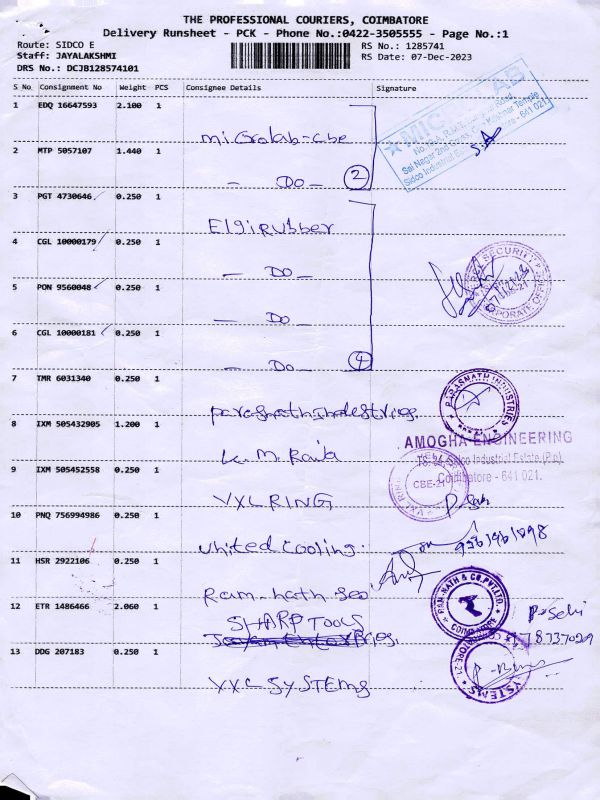 THE PROFESSIONAL COURIERS, COIMBATORE
Delivery Runsheet - PCK - Phone No.:0422-3505555 - Page No.:1
Route: SIDCO E
RS No.: 1285741
Staff: JAYALAKSHMI
RS Date: 07-Dec-2023
DRS No.: DCJB128574101
S No Consignment No Weight PCS Consignee Details Signature
1 EDQ 16647593 2.100 1
microlab-cbe
2 MTP 5057107 1.440 1
- Do - 2
3 PGT 4730646 0.250 1
Elgi Rubber
4 CGL 10000179 0.250 1
- Do -
5 PON 9560048 0.250 1
- Do -
6 CGL 10000181 0.250 1
- Do - 4
7 TMR 6031340 0.250 1
PARASNATH INDUSTRIES
8 IXM 505432905 1.200 1
AMOGHA ENGINEERING
Sidco Industrial Estate (P.o)
Coimbatore - 641 021.
CBE-21
9 IXM 505452558 0.250 1
VXL RING
10 PNQ 756994986 0.250 1
United Cooling.
11 HSR 2922106 0.250 1
Ram-nath
RAM-NATH & CO.PVT.LTD.
COIMBATORE
12 ETR 1486466 2.060 1
SHARP TOOLS
13 DDG 207183 0.250 1
SYSTEMS